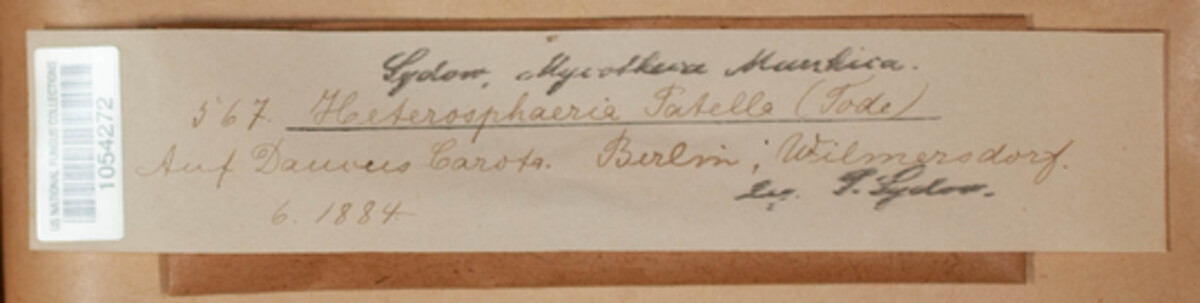 Sydow, Mycotheca Marchica.
567. Heterosphaeria Patella (Tode)
Auf Daucus Carota. Berlin; Wilmersdorf.
leg. P. Sydow.
6. 1884
US NATIONAL FUNGUS COLLECTIONS
1054272